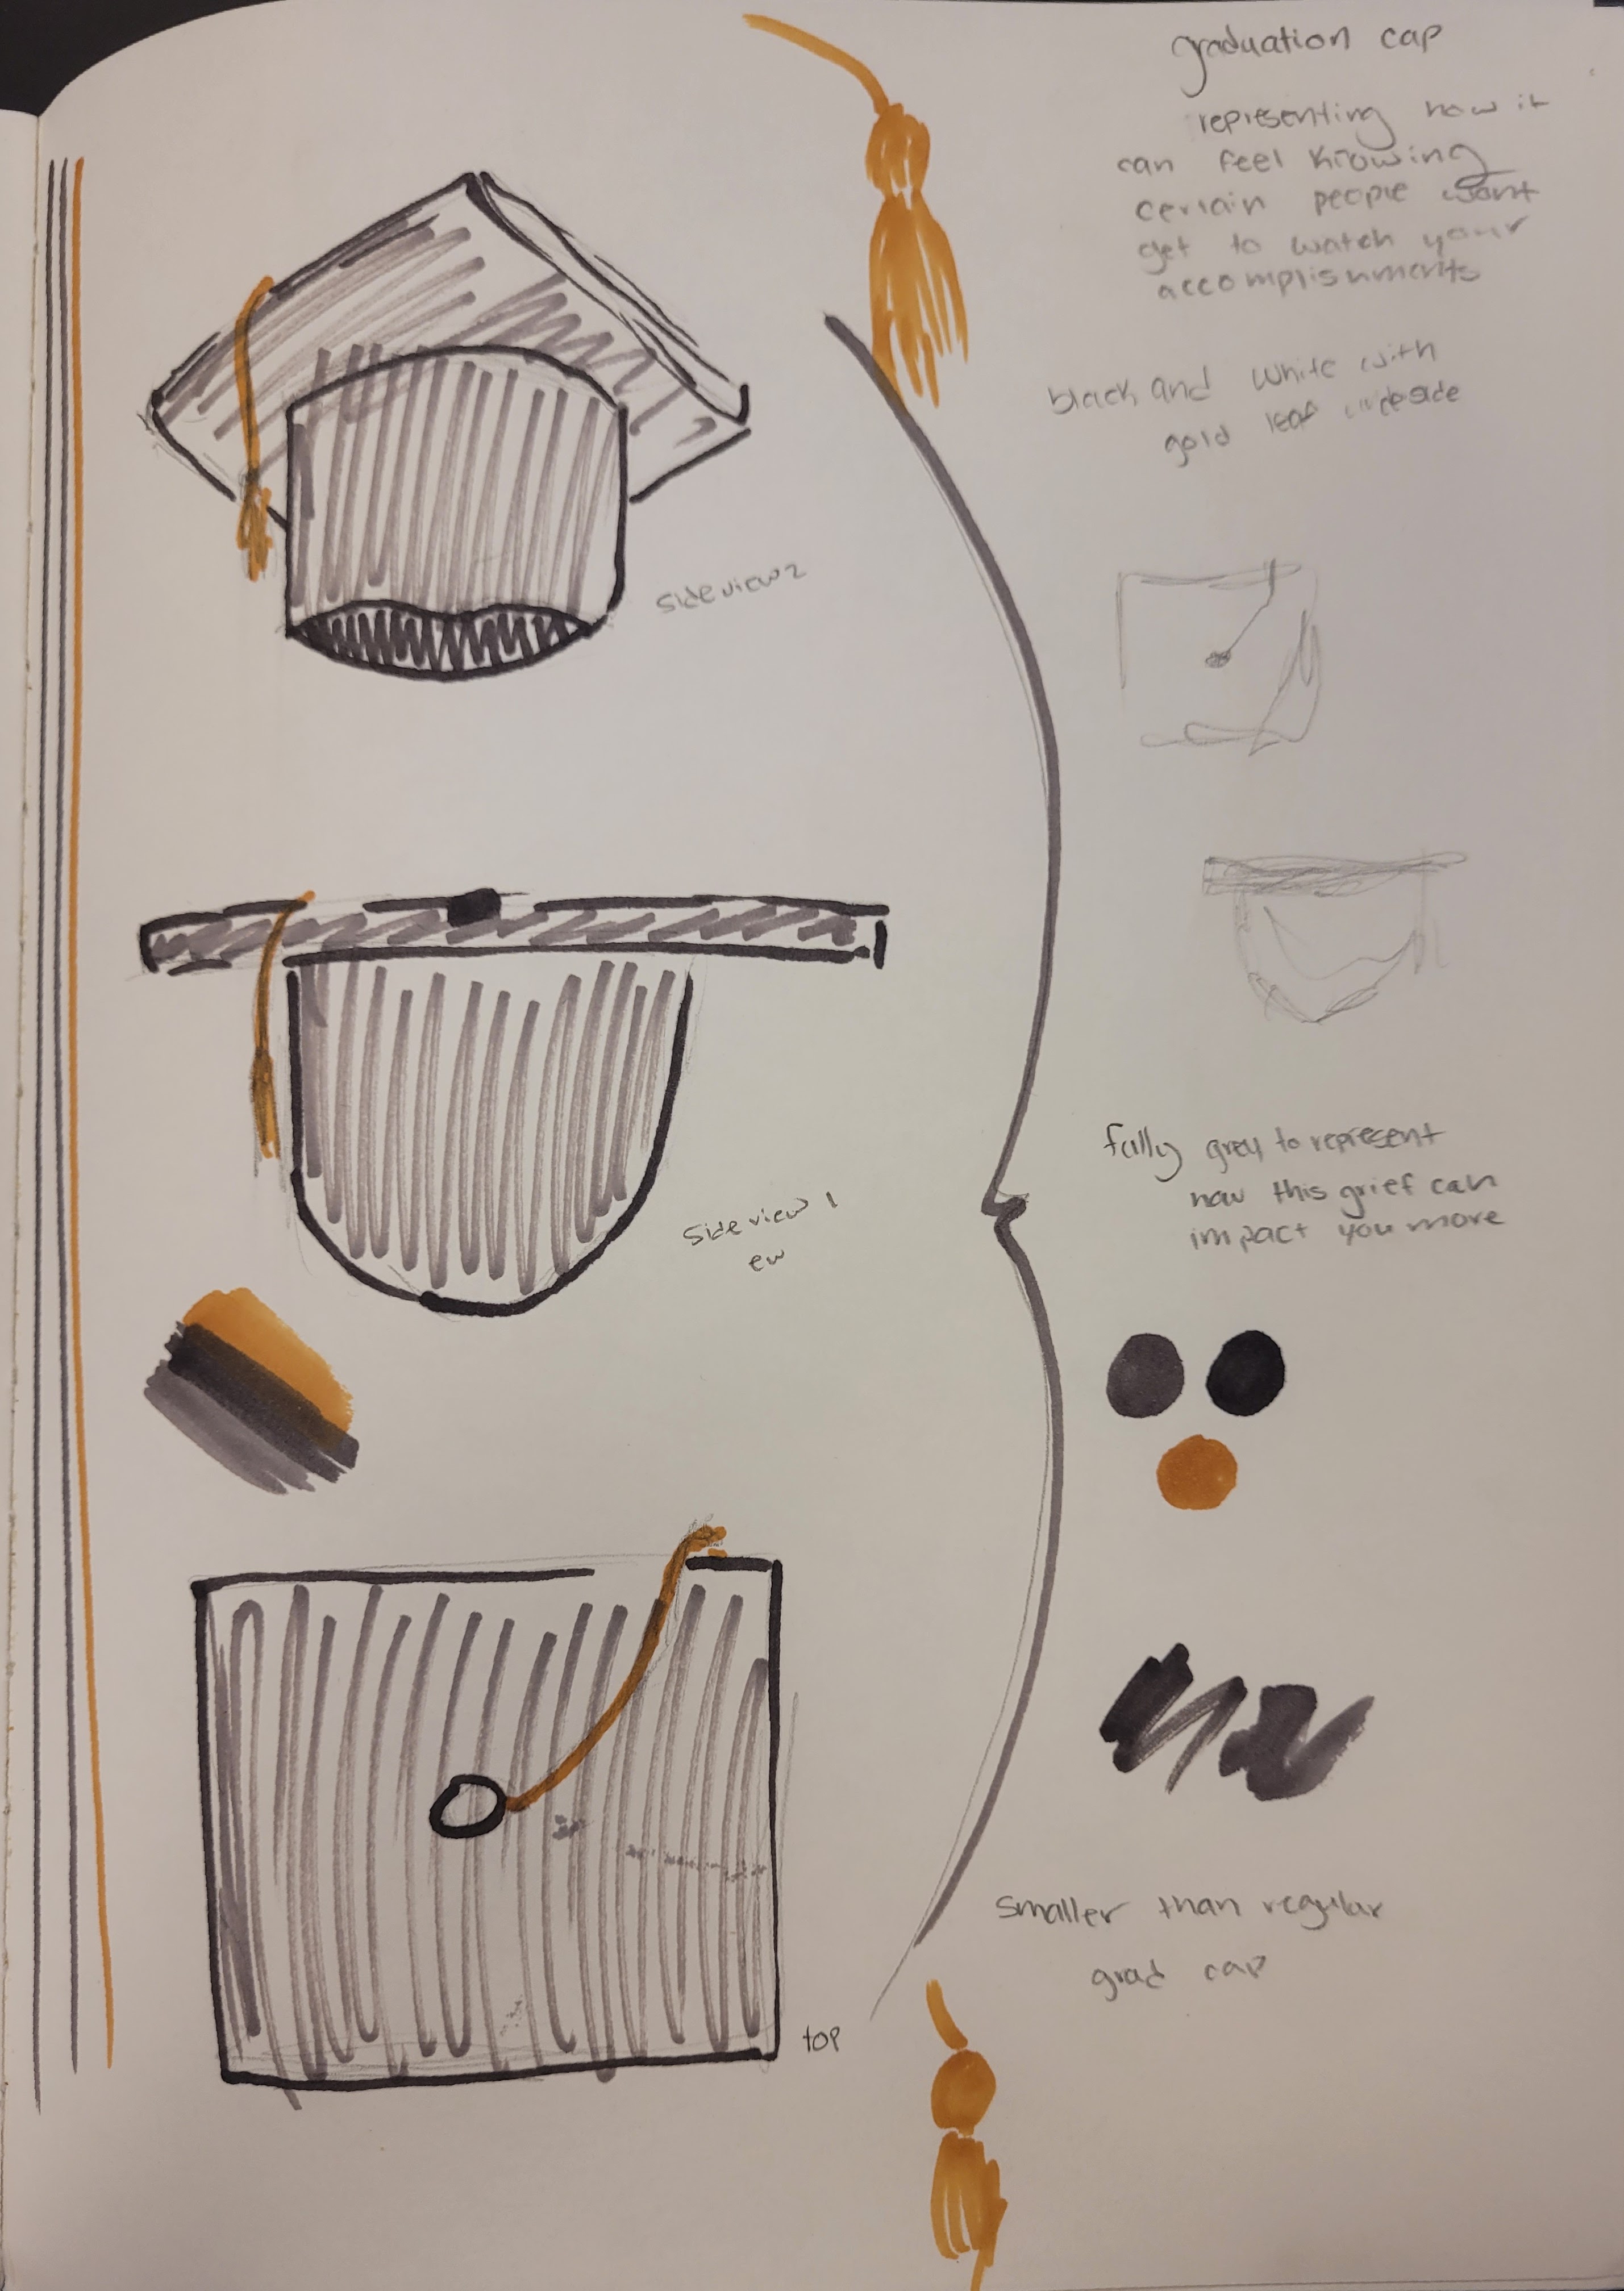 graduation cap
representing how it
can feel knowing
certain people wont
get to watch your
accomplishments
black and white with
gold leaf underside
side view 2
fully grey to represent
how this grief can
impact you more
side view 1
ew
smaller than regular
grad cap
top